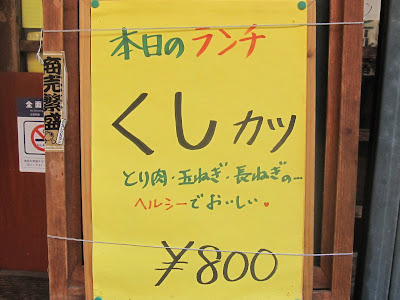 本日のランチ
くしカツ
とり肉・玉ねぎ・長ねぎの…
ヘルシーでおいしい
¥800
商売繁盛
全面